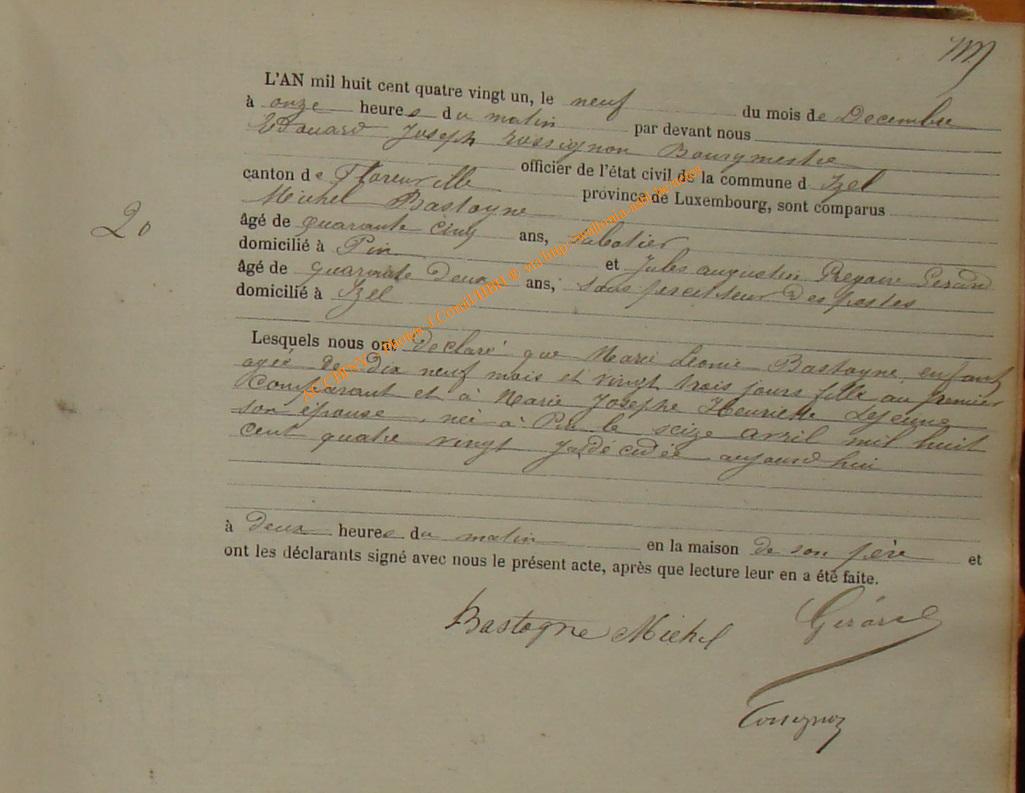 L'AN mil huit cent quatre vingt un, le neuf du mois de Decembre
à onze heures du matin par devant nous
Edouard Joseph Rossignon Bourgmestre
officier de l'état civil de la commune d Izel
canton de Florenville province de Luxembourg, sont comparus
Michel Bastogne
20
âgé de quarante cinq ans, sabotier
domicilié à Pin et Jules augustin Gérard
âgé de quarante deux ans, sous percepteur des postes
domicilié à Izel
Lesquels nous ont declaré que Marie Leonie Bastogne, enfant
agée de dix neuf mois et vingt trois jours fille au premier
Comparant et à Marie Josephe Henriette Lejeune
son épouse, née à Pin le seize avril mil huit
cent quatre vingt décédée aujourd'hui
à deux heures du matin en la maison de son père et
ont les déclarants signé avec nous le présent acte, après que lecture leur en a été faite.
Bastogne Michel Gérard
Rossignon